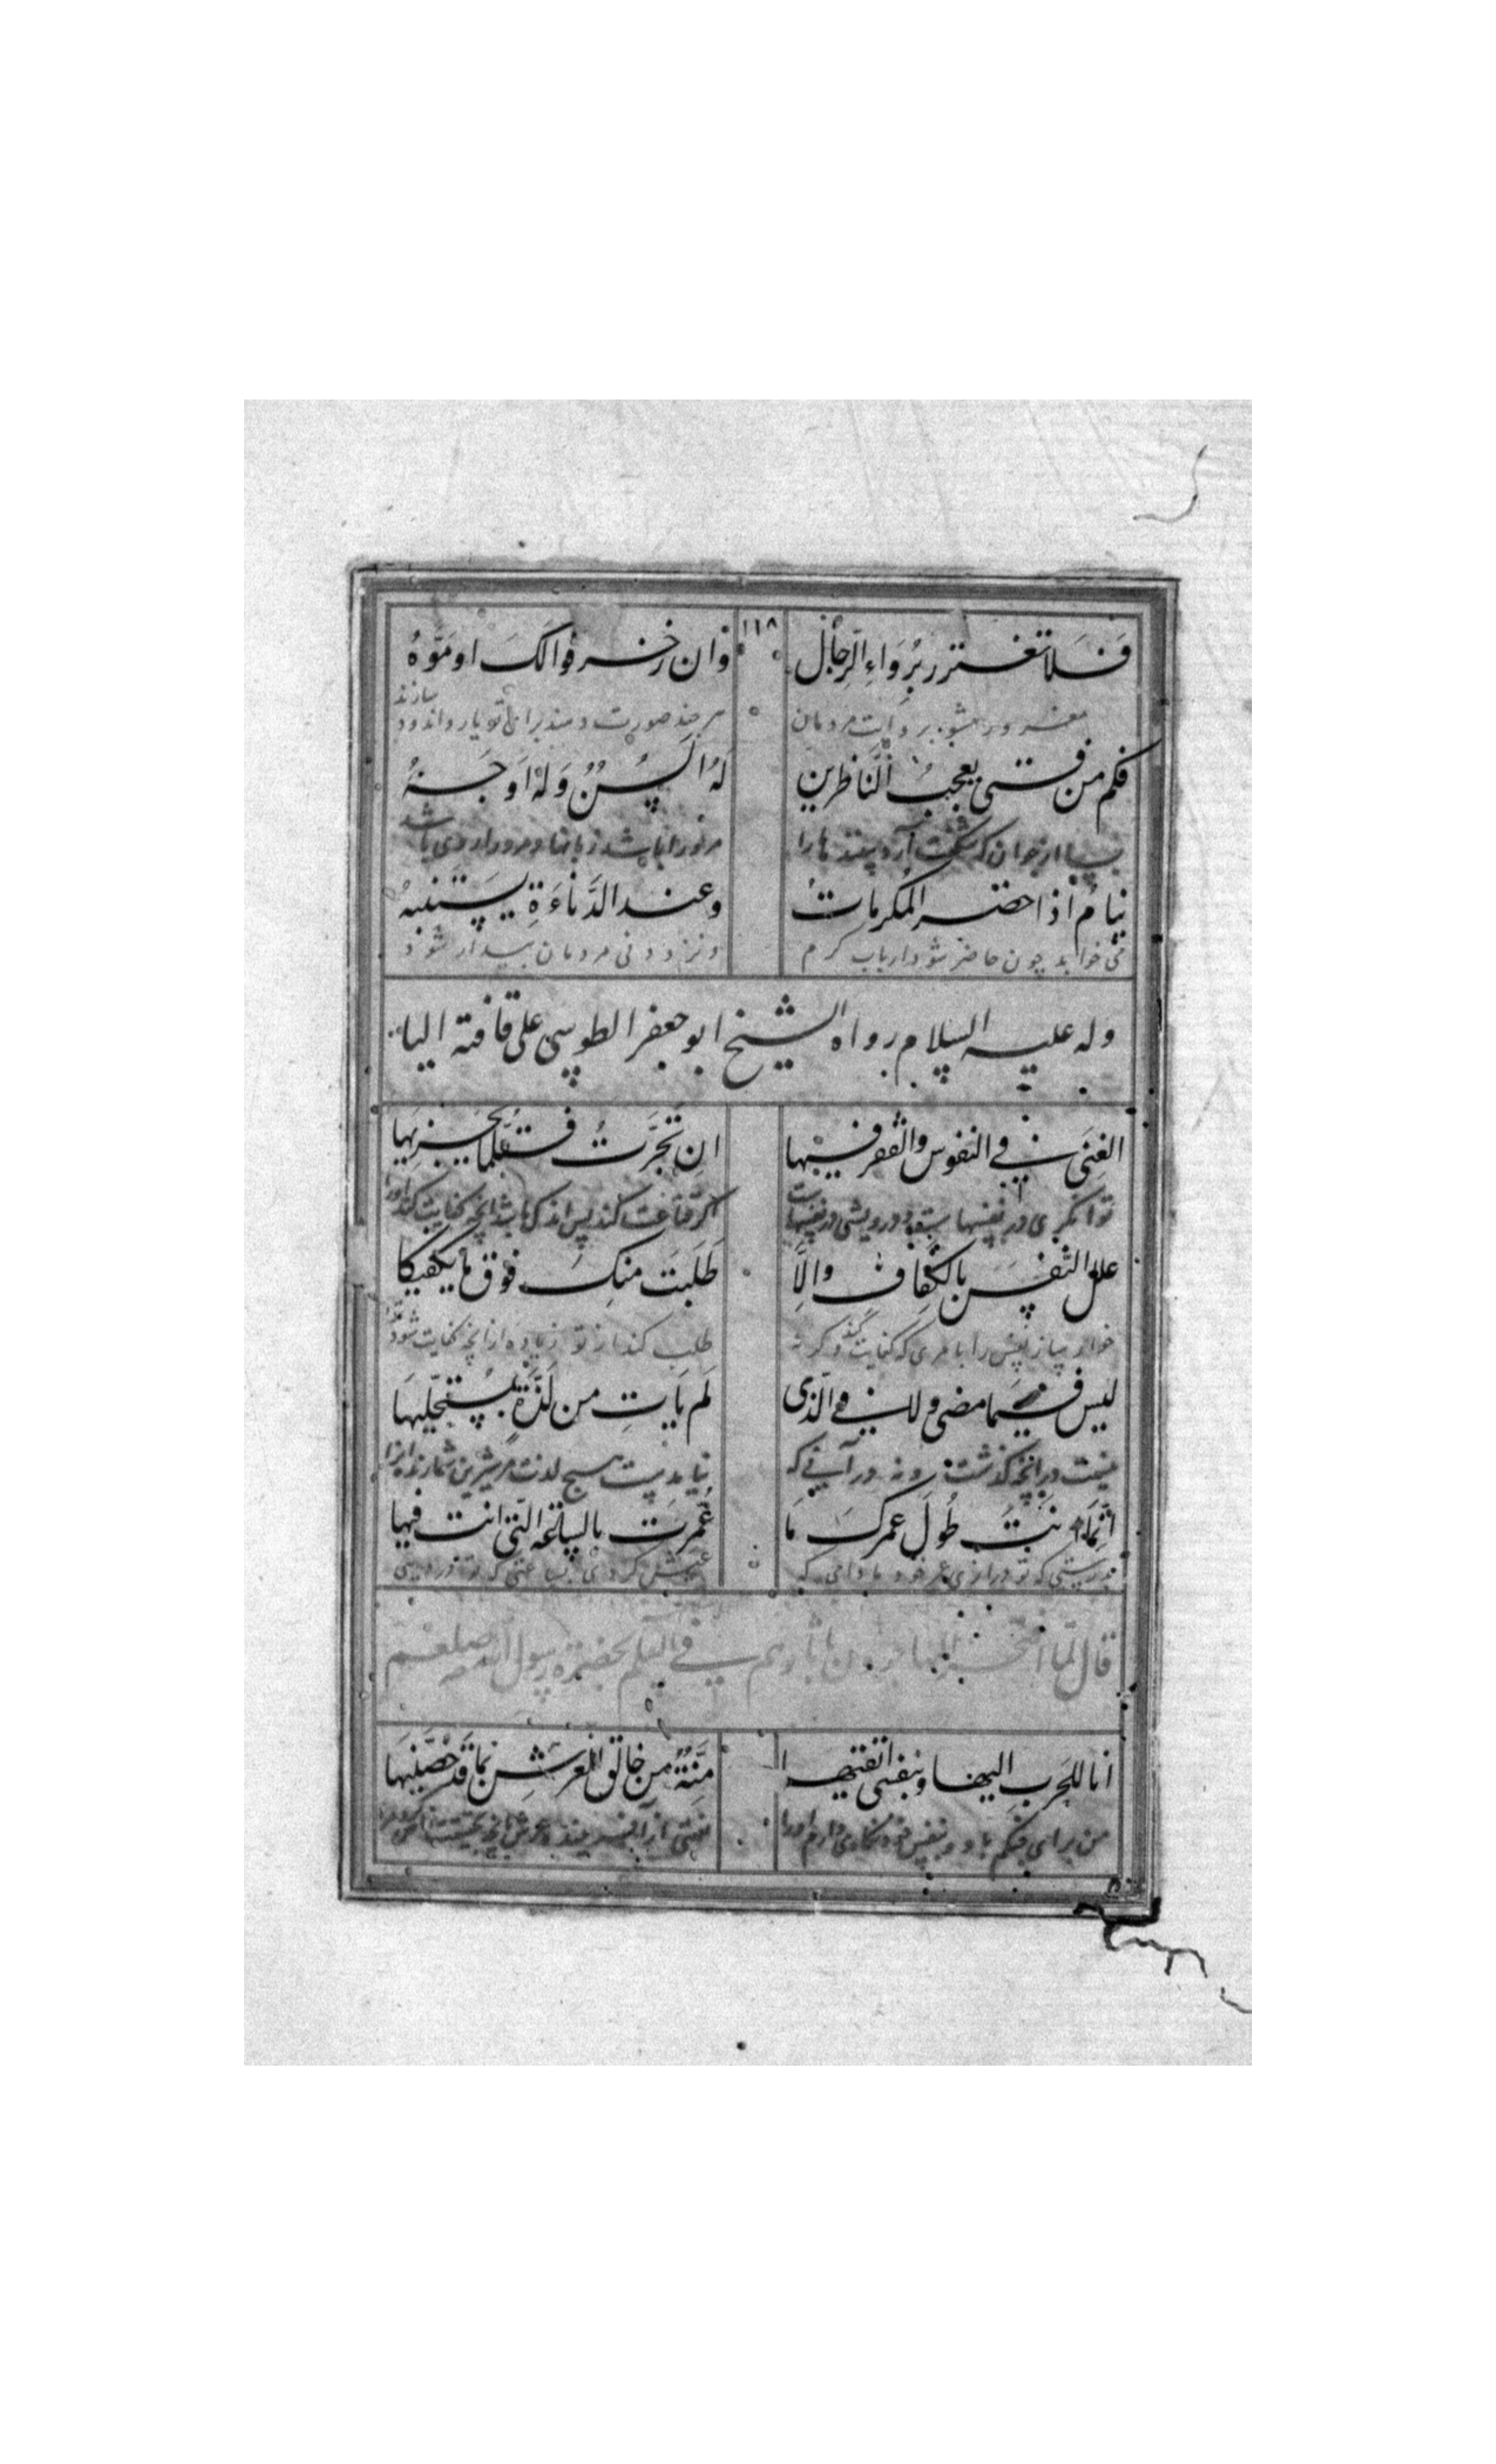 ١١٨
فَلَا تغترر بِرُوَاءِ الرِّجَالِ وان زخرفوا لكَ او مَوَّهُ
مغرور مشو بر وایت مردمان هر چند صورت دهند برای تو یا زر اندود سازند
فكم من فتى يعجبُ النَّاظرين لهُ اَلسُنٌ وَلهُ اَوجَهُ
بسا از جوان که شکفت آرد بیننده‌ها را مر او را باشد زبانها و مر او را روی باشد
نيامٌ اذا حضر المكرماتُ وعند الدَّناءَةِ يستنبهُ
می خوابد چون حاضر شود ارباب کرم ونزد دونی مردمان بیدار شود
وله عليه السلام رواه الشيخ ابو جعفر الطوسى على قافته اليا
الغِنَى في النفوس والفقر فيها اِن تَجَرَّتُ فقلّما يجزيها
توانگری در نفسها ست و درویشی در نفسها ست اگر قناعت کند پس اندک باشد انچه کفایت کند او را
علل النَّفسَ بالكفاف والِّا طَلَبَت منكَ فوق ما يكفيكا
خوار ساز نفس را بامری که کفایت کند و گر نه طلب کند از تو زیاده از انچه کفایت شود
ليس فيَما مضى ولا في الّذى لم يَاتِ من لَذَّةٍ لمُستحليها
نیست در انچه گذشت و نه در آنی که نیامدست هیچ لذت مر شیرین شمارنده آنرا
انَّما انتَ طُولَ عمركَ مَا عُمِرَت بالساعة الَّتى انت فيها
بدرستی که تو درازی عمر خود مادامی که عیش کرده‌ای بساعتی که تو در اویی
قال لمّا افتخر المهاجرون بآثارهم في العلم بحضرة رسول الله صلعم
انا للحَربِ اليها وبنفسى اتقيها مِنَّةٌ من خالق العرش بما قد خصَّنيها
من برای جنگم با او و بنفس خود نگاه دارم او را